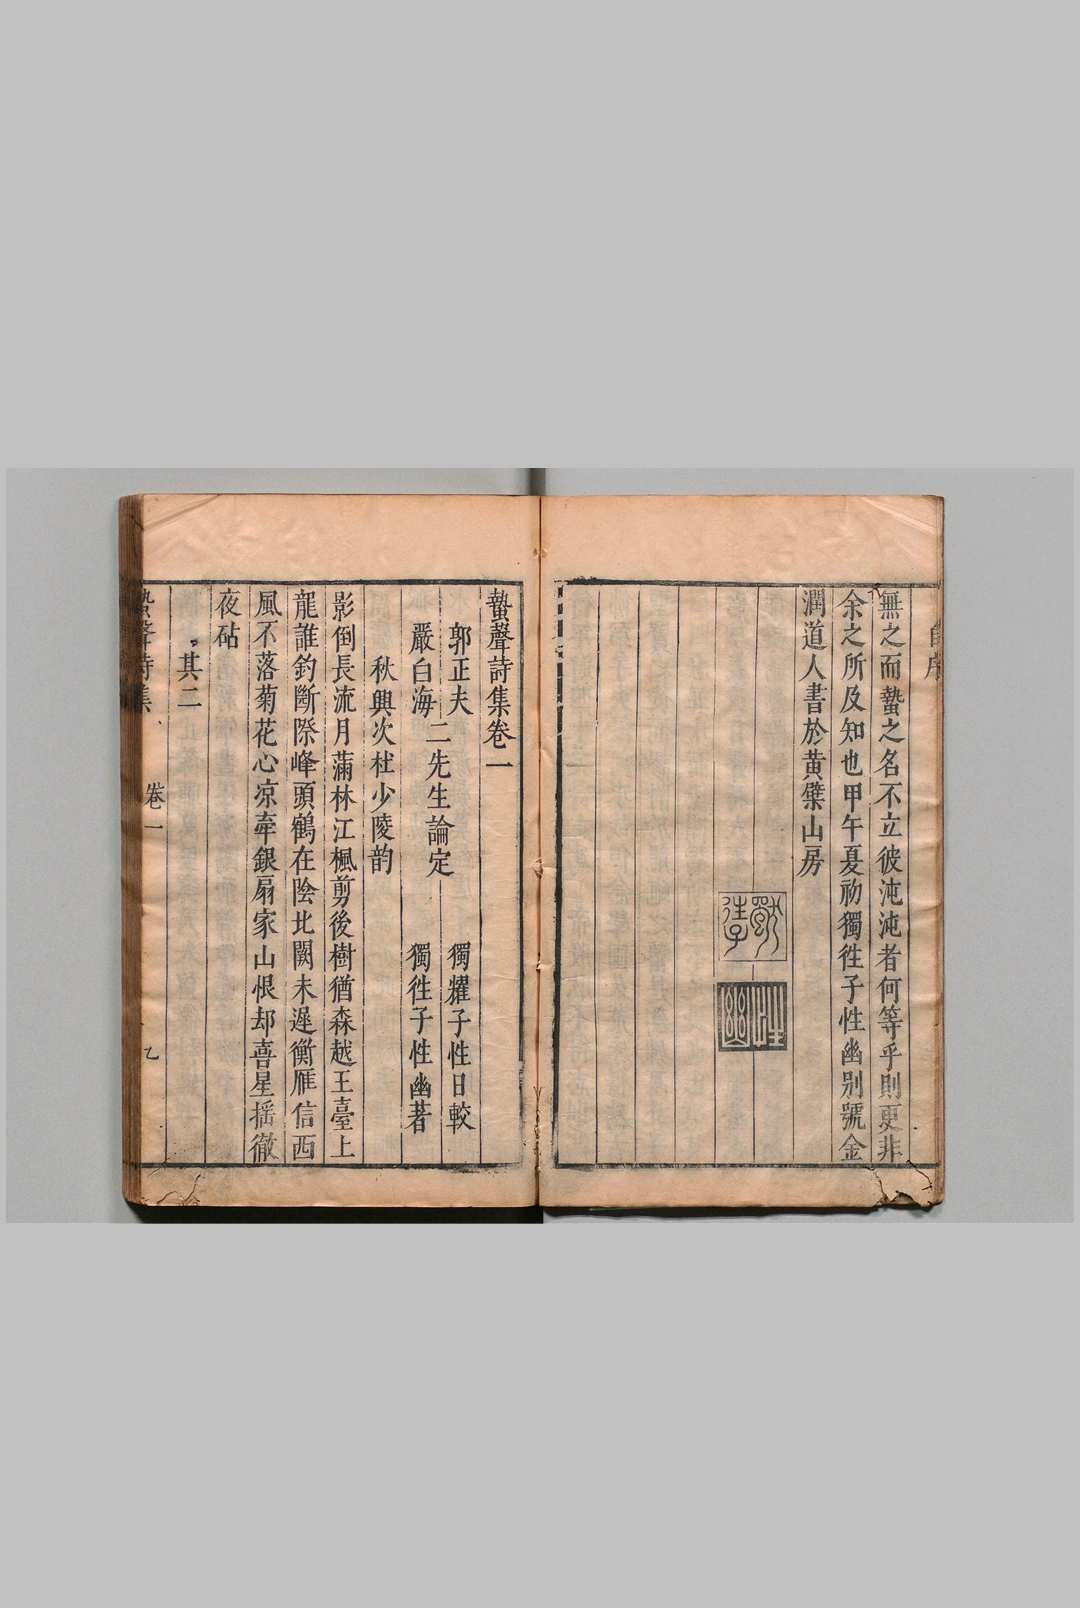 自序
無之而蟄之名不立彼沌沌者何等乎則更非
余之所及知也甲午夏初獨徃子性幽别號金
潤道人書於黄檗山房
獨徃
性幽
蟄聲詩集卷一
郭正夫
嚴白海
二先生論定
獨耀子性日較
獨徃子性幽著
秋興次杜少陵韵
影倒長流月蒲林江楓剪後樹猶森越王臺上
龍誰釣斷際峰頭鶴在陰北闕未遲衡雁信西
風不落菊花心凉牽銀扇家山恨却喜星摇徹
夜砧
其二
蟄聲詩集
卷一
乙